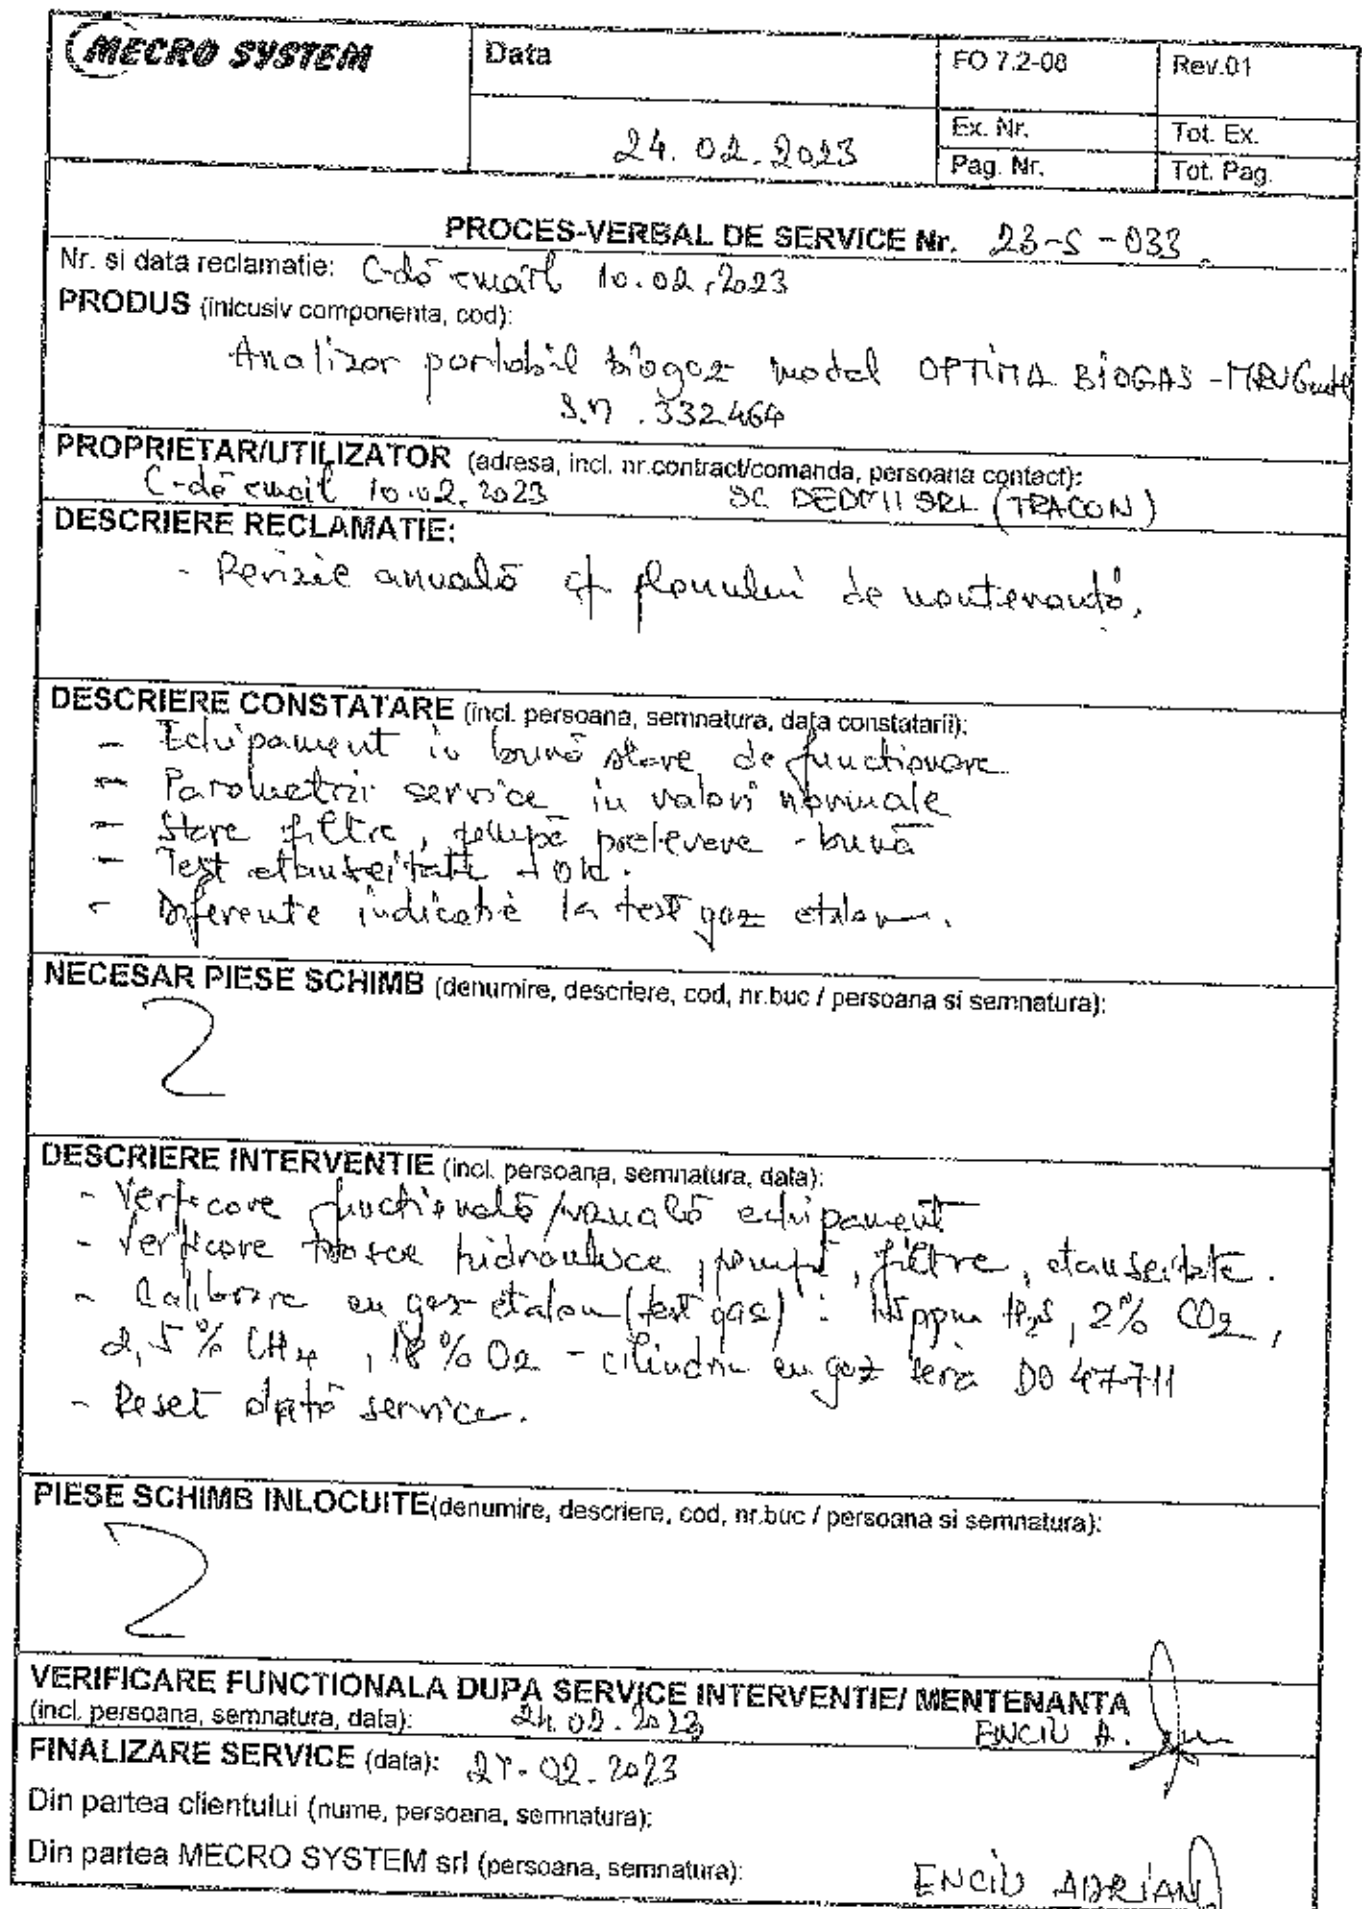 MECRO SYSTEM
Data
FO 7.2-08
Rev.01
24.02.2023
Ex. Nr.
Tot. Ex.
Pag. Nr.
Tot. Pag.
PROCES-VERBAL DE SERVICE Nr. 23-S-033
Nr. si data reclamatie: C-dă email 10.02.2023
PRODUS (inlcusiv componenta, cod):
Analizor portabil biogaz model OPTIMA BIOGAS - MRU
S.n. 332464
PROPRIETAR/UTILIZATOR (adresa, incl. nr.contract/comanda, persoana contact):
C-dă email 10.02.2023 SC DEDMII SRL (TRACON)
DESCRIERE RECLAMATIE:
- Revizie anuală cf planului de mentenanță.
DESCRIERE CONSTATARE (incl. persoana, semnatura, data constatarii):
- Echipament in bună stare de functionare
- Parametrii service in valori nominale
- Stare filtre, pompă prelevare - bună
- Test etanseitate - ok.
- Diferente indicatie la test gaz etalon.
NECESAR PIESE SCHIMB (denumire, descriere, cod, nr.buc / persoana si semnatura):
DESCRIERE INTERVENTIE (incl. persoana, semnatura, data):
- Verificare functională/vizuală echipament
- Verificare trasee hidraulice, pompă, filtre, etanseitate.
- Calibrare cu gaz etalon (test gas): ppm H2S, 2% CO2,
2,5% CH4, 18% O2 - cilindru cu gaz seria DO 47711
- Reset după service.
PIESE SCHIMB INLOCUITE(denumire, descriere, cod, nr.buc / persoana si semnatura):
VERIFICARE FUNCTIONALA DUPA SERVICE INTERVENTIE/ MENTENANTA
(incl. persoana, semnatura, data): 24.02.2023 ENCIU A.
FINALIZARE SERVICE (data): 27.02.2023
Din partea clientului (nume, persoana, semnatura):
Din partea MECRO SYSTEM srl (persoana, semnatura): ENCIU ADRIAN